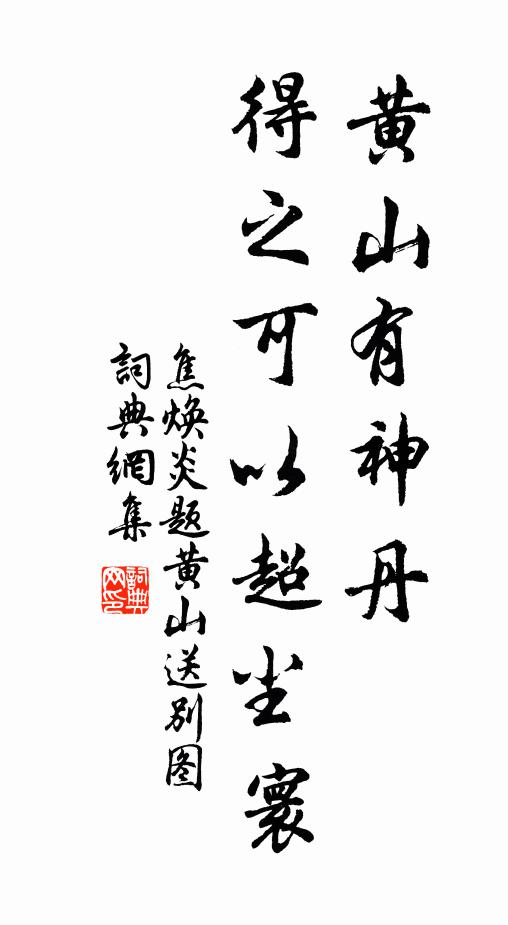 黄山有神丹
得之可以超尘寰
焦焕炎题黄山送别图
詞典網集
詞典网印